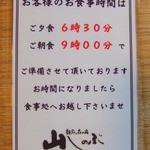 お客様のお食事時間は
ご夕食 6時30分
ご朝食 9時00分 で
ご準備させて頂いております
お時間になりましたら
食事処へお越し下さいませ
山しのぶ